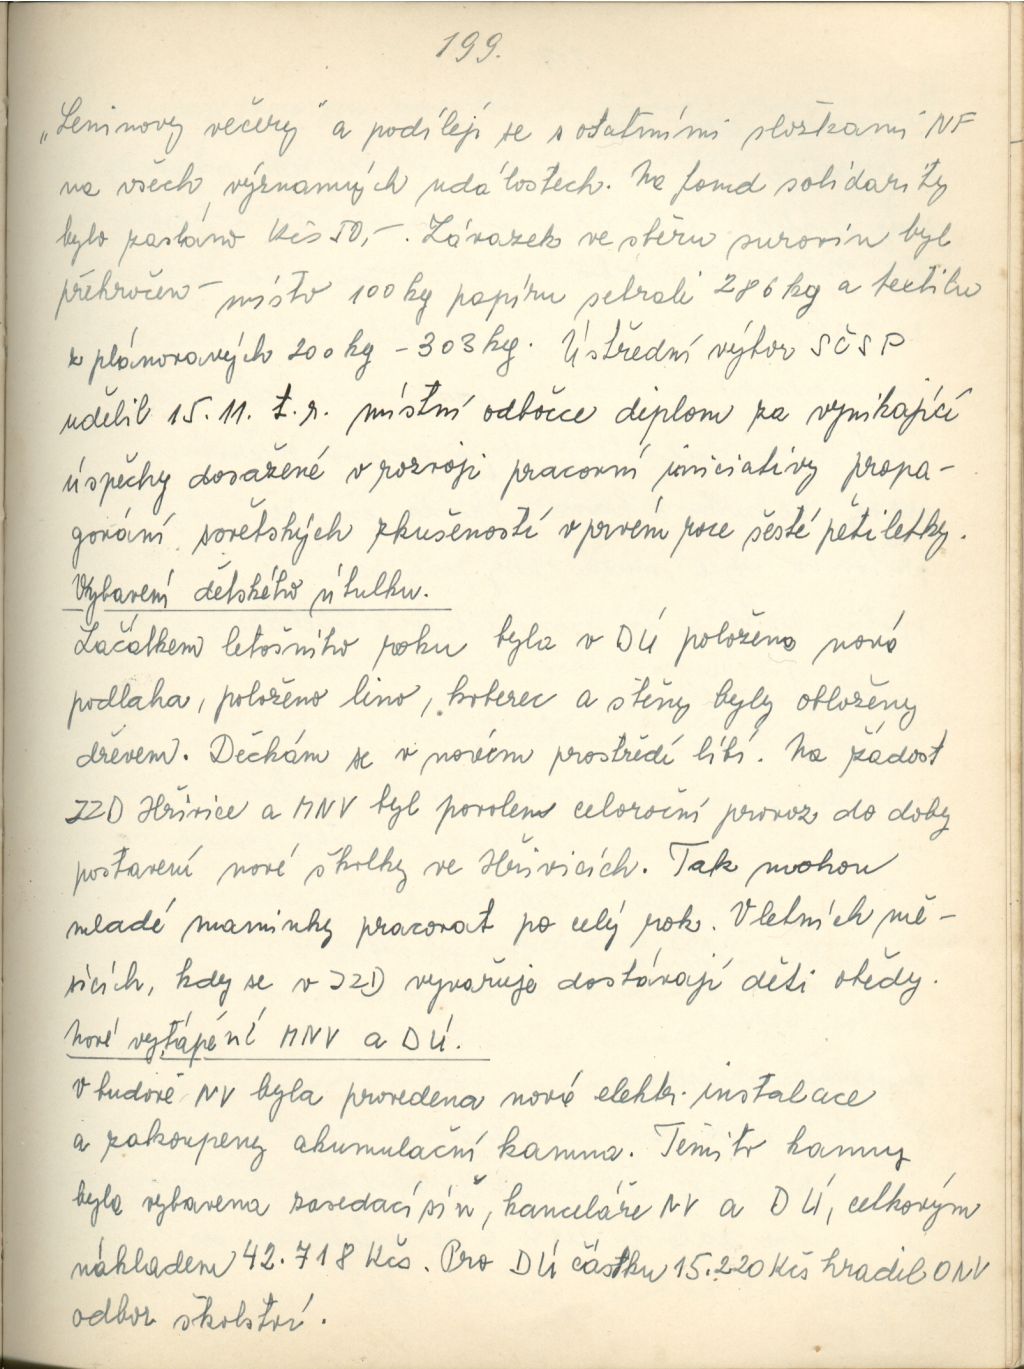 199.
„Leninovy večery" a podílejí se s ostatními složkami NF
na všech významných událostech. Na fond solidarity
bylo zasláno Kčs 50,-. Závazek ve sběru surovin byl
překročen - místo 100 kg papíru sebrali 286 kg a textilu
z plánovaných 200 kg - 303 kg. Ústřední výbor SČSP
udělil 15. 11. t. r. místní odbočce diplom za vynikající
úspěchy dosažené v rozvoji pracovní iniciativy propa-
gování sovětských zkušeností v prvém roce šesté pětiletky.
Vybavení dětského útulku.
Začátkem letošního roku byla v DÚ položena nová
podlaha, položeno lino, koberec a stěny byly obloženy
dřevem. Děckám se v novém prostředí líbí. Na žádost
JZD Hřivice a MNV byl povolen celoroční provoz do doby
postavení nové školky ve Hřivicích. Tak mohou
mladé maminky pracovat po celý rok. V letních mě-
sících, kdy se v JZD vyvařuje dostávají děti obědy.
Nové vytápění MNV a DÚ.
V budově NV byla provedena nová elektr. instalace
a zakoupeny akumulační kamna. Těmito kamny
byla vybavena zasedací síň, kanceláře NV a DÚ, celkovým
nákladem 42.718 Kčs. Pro DÚ částku 15.220 Kčs hradil ONV
odbor školství.